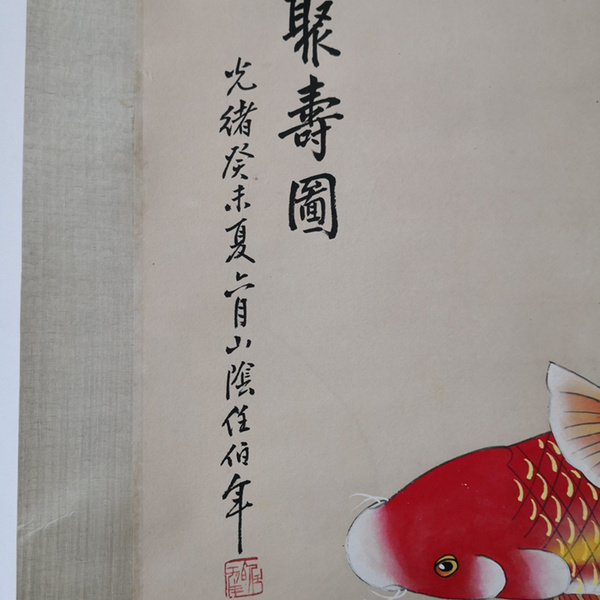 聚壽圖
光緒癸未夏六月山陰任伯年